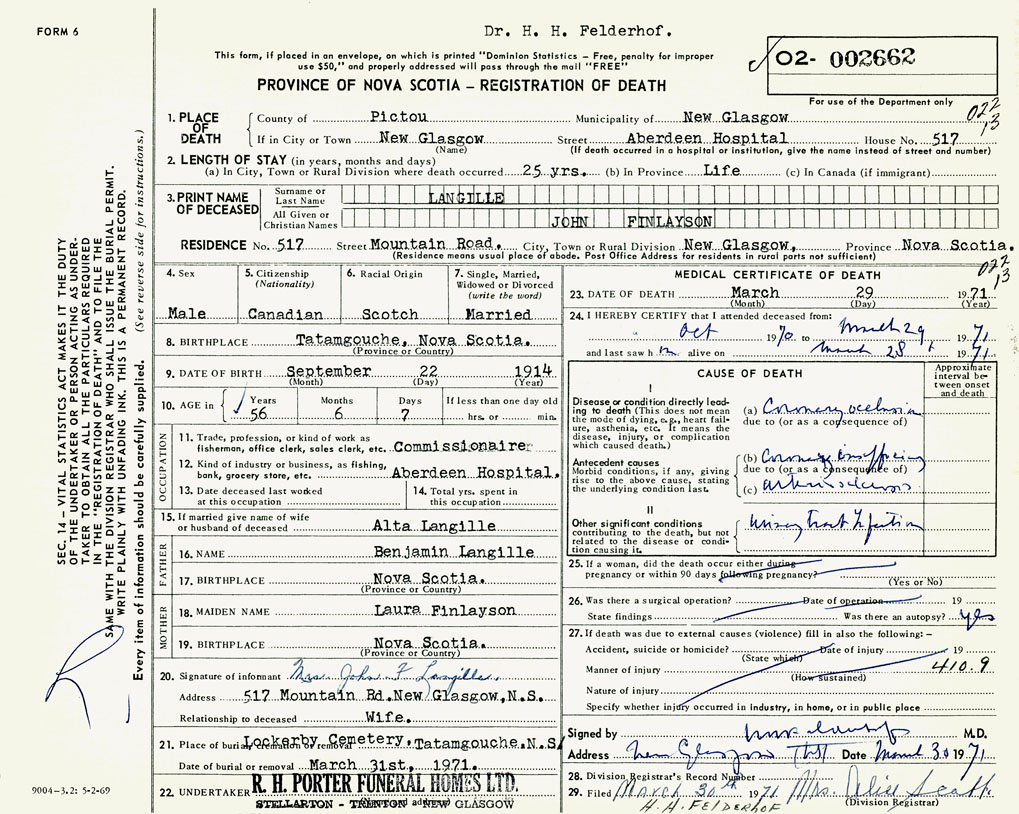 FORM 6
Dr. H. H. Felderhof.
This form, if placed in an envelope, on which is printed "Dominion Statistics – Free, penalty for improper
use $50," and properly addressed will pass through the mail "FREE"
PROVINCE OF NOVA SCOTIA – REGISTRATION OF DEATH
02- 002662
For use of the Department only
022
13
1. PLACE OF DEATH County of Pictou Municipality of New Glasgow
If in City or Town New Glasgow Street Aberdeen Hospital House No. 517
(Name) (If death occurred in a hospital or institution, give the name instead of street and number)
2. LENGTH OF STAY (in years, months and days)
(a) In City, Town or Rural Division where death occurred 25 yrs. (b) In Province Life (c) In Canada (if immigrant)
3. PRINT NAME OF DECEASED Surname or Last Name LANGILLE
All Given or Christian Names JOHN FINLAYSON
RESIDENCE No. 517 Street Mountain Road. City, Town or Rural Division New Glasgow, Province Nova Scotia.
(Residence means usual place of abode. Post Office Address for residents in rural parts not sufficient)
SEC. 14 – VITAL STATISTICS ACT MAKES IT THE DUTY
OF THE UNDERTAKER OR PERSON ACTING AS UNDER-
TAKER TO OBTAIN ALL THE PARTICULARS REQUIRED
IN THE "REGISTRATION OF DEATH" AND TO FILE THE
SAME WITH THE DIVISION REGISTRAR WHO SHALL ISSUE THE BURIAL PERMIT.
WRITE PLAINLY WITH UNFADING INK. THIS IS A PERMANENT RECORD.
Every item of information should be carefully supplied. (See reverse side for instructions.)
4. Sex Male
5. Citizenship (Nationality) Canadian
6. Racial Origin Scotch
7. Single, Married, Widowed or Divorced (write the word) Married
8. BIRTHPLACE Tatamgouche, Nova Scotia.
(Province or Country)
9. DATE OF BIRTH September 22 1914
(Month) (Day) (Year)
10. AGE in Years 56 Months 6 Days 7 If less than one day old hrs. or min.
OCCUPATION
11. Trade, profession, or kind of work as
fisherman, office clerk, sales clerk, etc. Commissionaire
12. Kind of industry or business, as fishing,
bank, grocery store, etc. Aberdeen Hospital.
13. Date deceased last worked
at this occupation
14. Total yrs. spent in
this occupation
15. If married give name of wife
or husband of deceased Alta Langille
FATHER
16. NAME Benjamin Langille
17. BIRTHPLACE Nova Scotia.
(Province or Country)
MOTHER
18. MAIDEN NAME Laura Finlayson
19. BIRTHPLACE Nova Scotia.
(Province or Country)
20. Signature of informant Mrs. John F Langille.
Address 517 Mountain Rd. New Glasgow, N.S.
Relationship to deceased Wife.
21. Place of burial, cremation or removal Lockerby Cemetery, Tatamgouche, N.S.
Date of burial or removal March 31st, 1971.
22. UNDERTAKER R. H. PORTER FUNERAL HOMES LTD.
STELLARTON - TRENTON - NEW GLASGOW
9004–3.2: 5-2-69
MEDICAL CERTIFICATE OF DEATH
022
13
23. DATE OF DEATH March 29 1971
(Month) (Day) (Year)
24. I HEREBY CERTIFY that I attended deceased from:
Oct 1970 to March 29 1971
and last saw him alive on March 28 1971
CAUSE OF DEATH
Approximate interval between onset and death
I
Disease or condition directly lead-
ing to death (This does not mean
the mode of dying, e.g., heart fail-
ure, asthenia, etc. It means the
disease, injury, or complication
which caused death.)
(a) Coronary occlusion
due to (or as a consequence of)
Antecedent causes
Morbid conditions, if any, giving
rise to the above cause, stating
the underlying condition last.
(b) Coronary insufficiency
due to (or as a consequence of)
(c) arteriosclerosis
II
Other significant conditions
contributing to the death, but not
related to the disease or condi-
tion causing it.
Urinary tract infection
25. If a woman, did the death occur either during
pregnancy or within 90 days following pregnancy?
(Yes or No)
26. Was there a surgical operation? Date of operation 19
State findings Was there an autopsy? yes
27. If death was due to external causes (violence) fill in also the following: –
Accident, suicide or homicide? Date of injury 19
(State which)
Manner of injury 410.9
(How sustained)
Nature of injury
Specify whether injury occurred in industry, in home, or in public place
Signed by M.D.
Address New Glasgow Date March 30 1971
28. Division Registrar's Record Number
29. Filed March 30th 1971 Mrs. Alice Scott
H. H. FELDERHOF (Division Registrar)